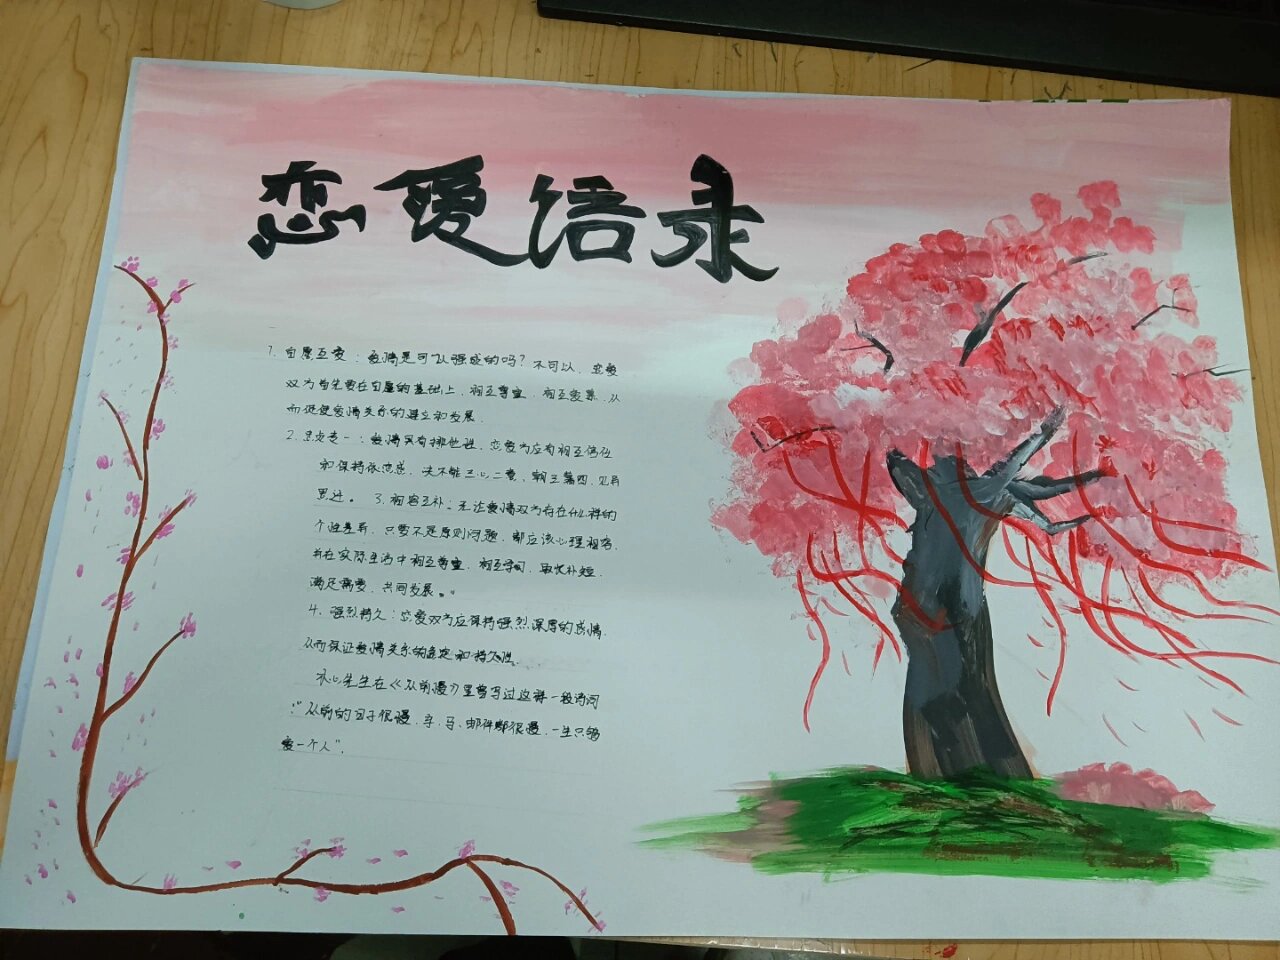 恋爱语录
1. 自愿互爱：爱情是可以强成的吗？不可以，恋爱
双方首先要在自愿的基础上，相互尊重，相互爱慕，从
而促使爱情关系的建立和发展。
2. 忠贞专一：爱情具有排他性，恋爱方应有相互信任
和保持依恋感，决不能三心二意，朝三暮四，见异
思迁。 3. 相容互补：无论爱情双方存在什么样的
个性差异，只要不是原则问题，都应该心理相容，
并在实际生活中相互尊重，相互学习，取长补短，
满足需要，共同发展。
4. 强烈持久：恋爱双方应保持强烈深厚的感情，
从而保证爱情关系的稳定和持久性。
木心先生在《从前慢》里曾写过这样一段诗词
：“从前的日子很慢，车、马、邮件都很慢，一生只够
爱一个人”。